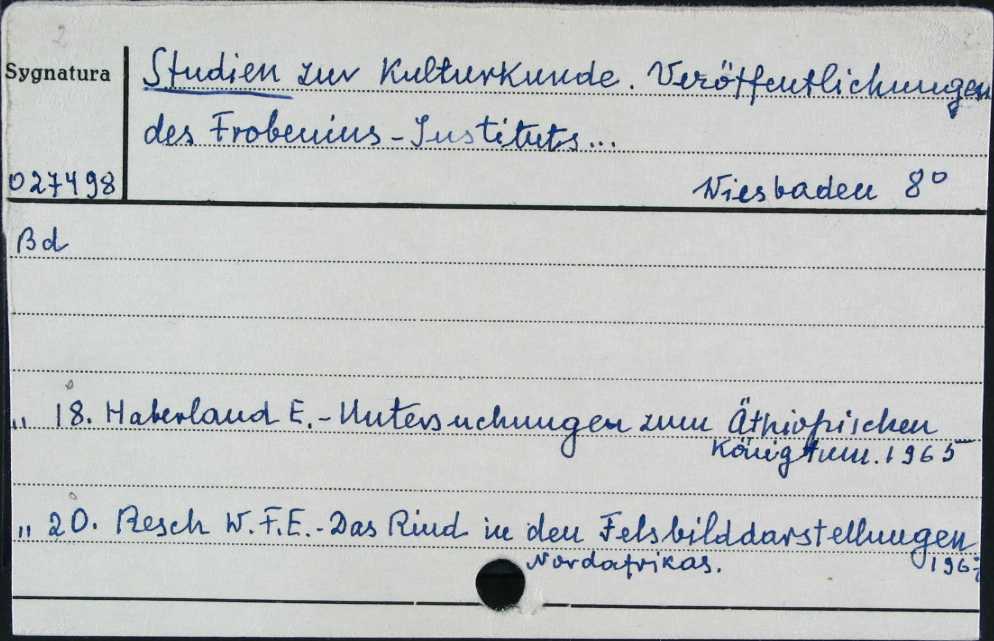 2
Sygnatura
Studien zur Kulturkunde. Veröffentlichungen
des Frobenius-Instituts...
027498
Wiesbaden 8°
Bd
„ 18. Haberland E.-Untersuchungen zum Äthiopischen
Königtum. 1965
„ 20. Resch W.F.E.-Das Rind in den Felsbilddarstellungen
Nordafrikas. 1967